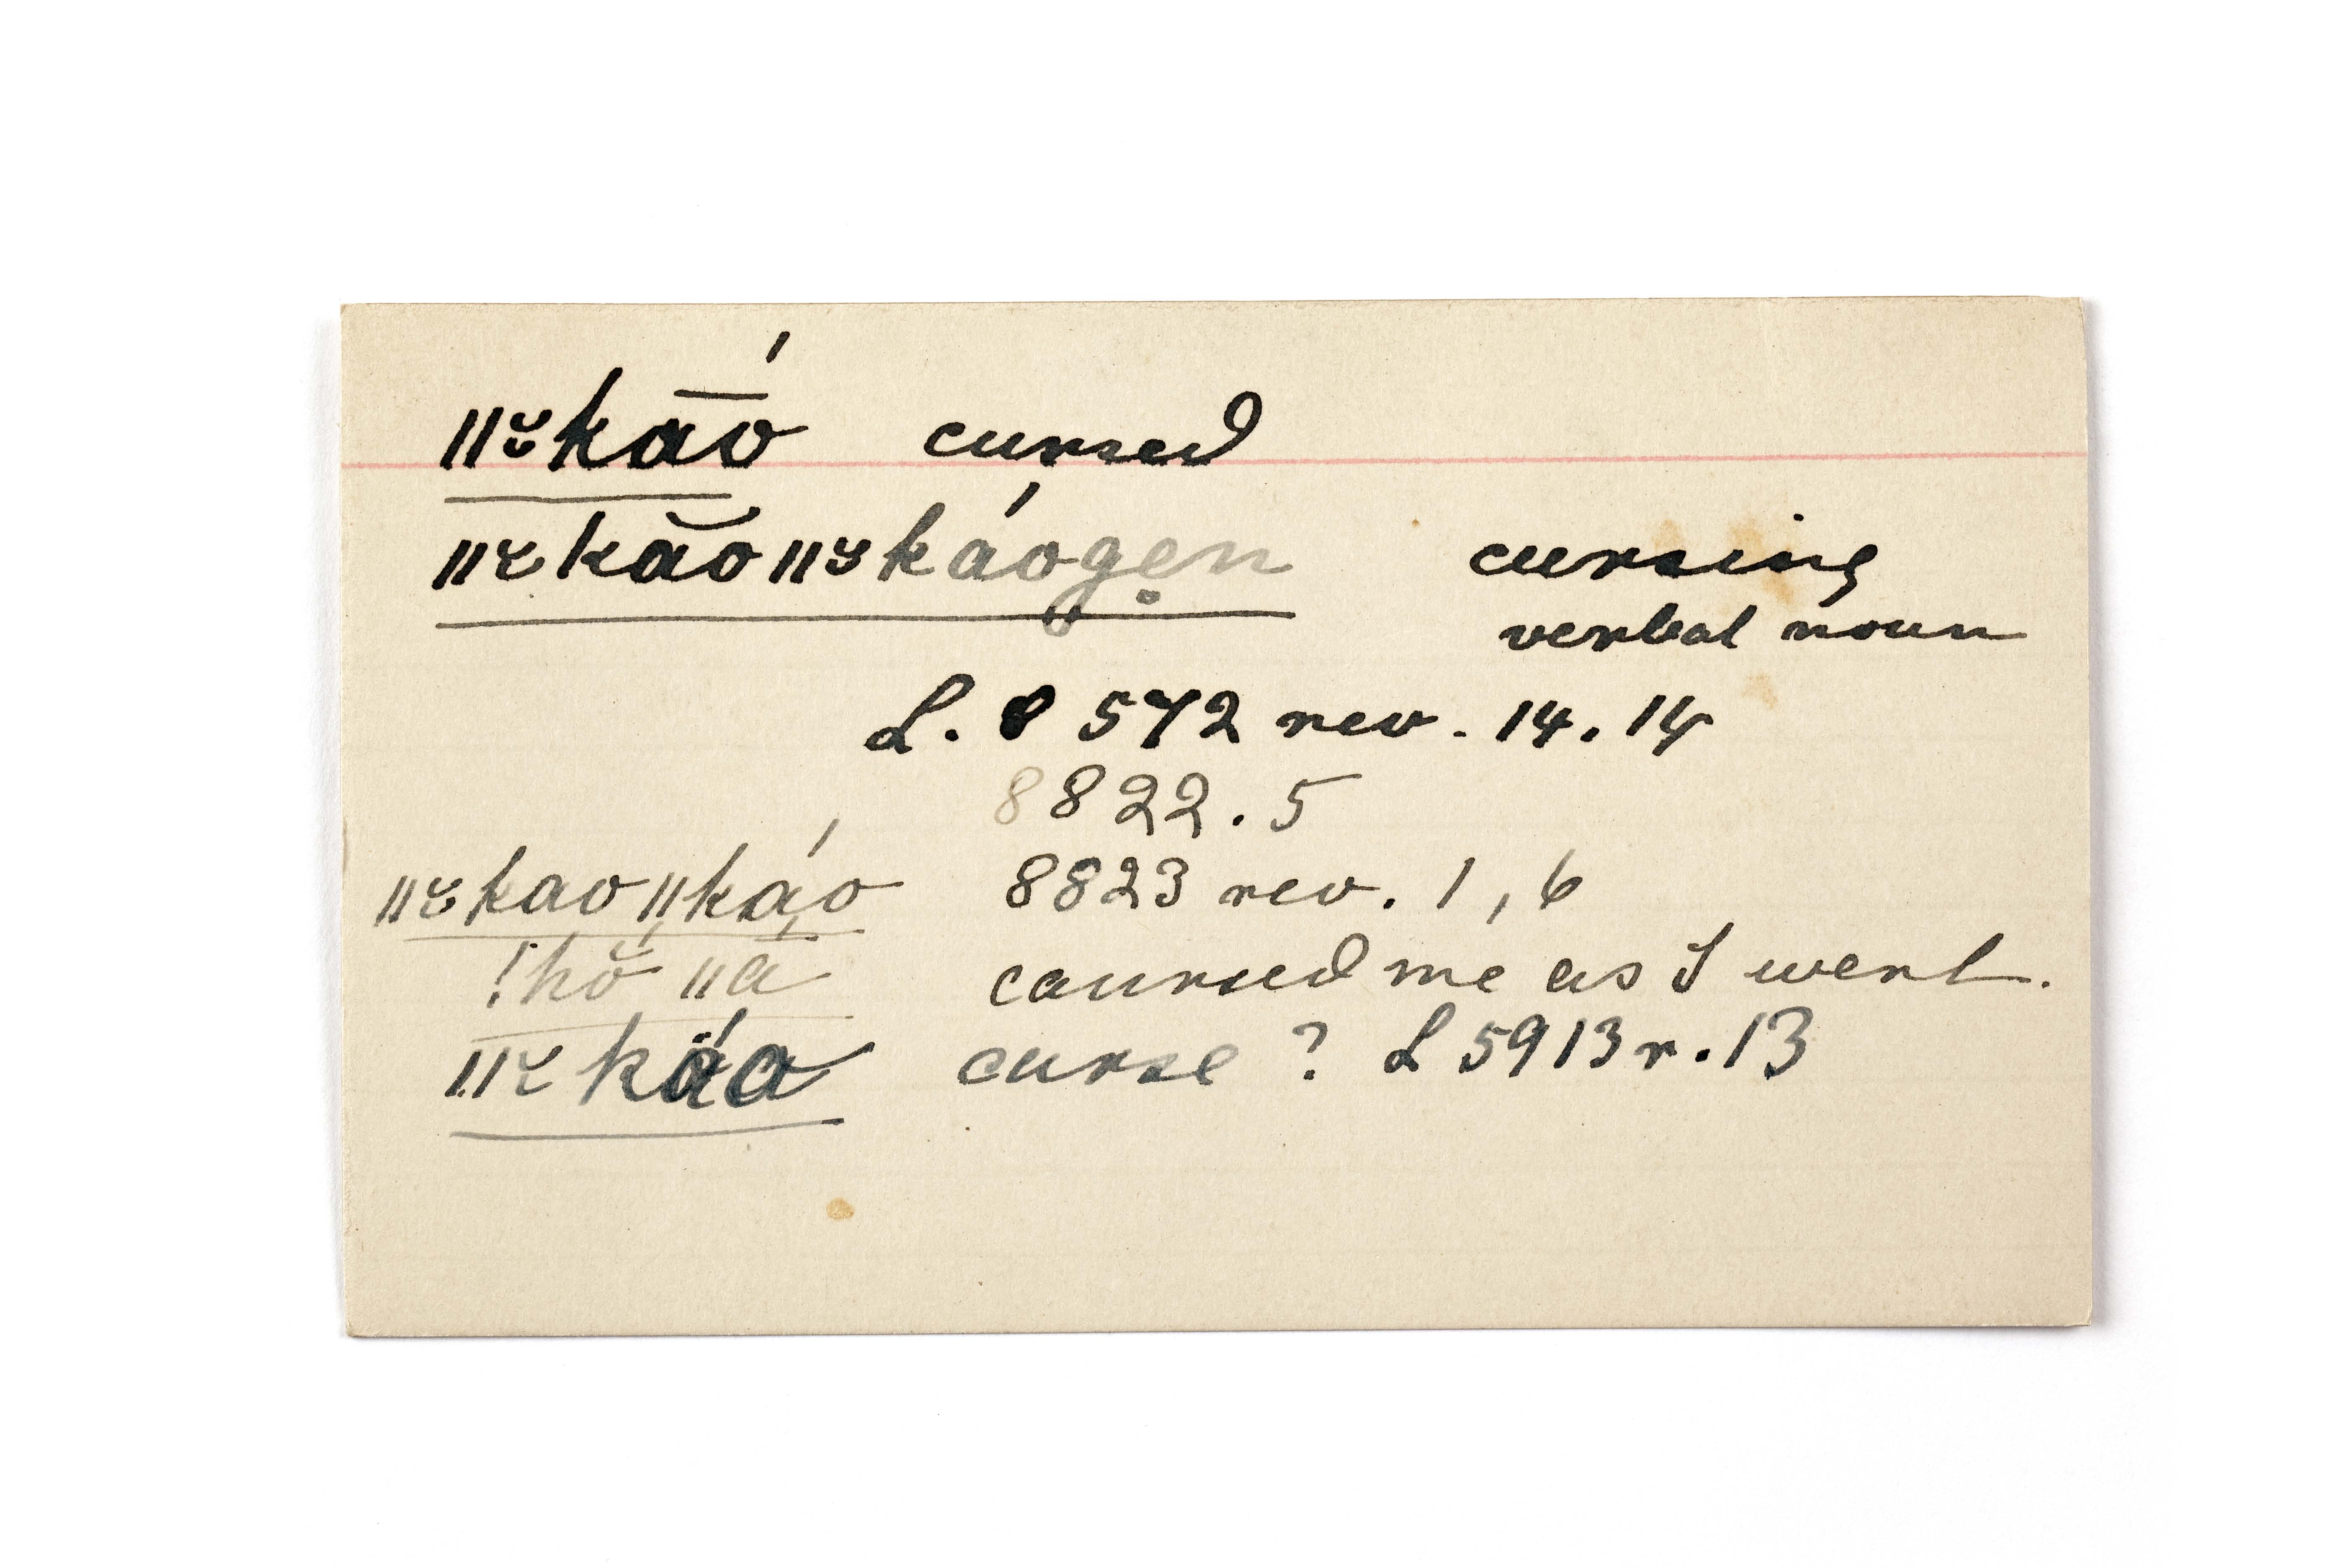 ǁ꞉kā́ŏ cursed
ǁ꞉kăoǁ꞉káogen̥ cursing
verbal noun
L. 8 572 rev. 14. 14
8822. 5
ǁ꞉kaoǁkáo 8823 rev. 1, 6
!hŏ ǁā caursed me as I went.
ǁ꞉kä́a curse ? L 5913 r. 13